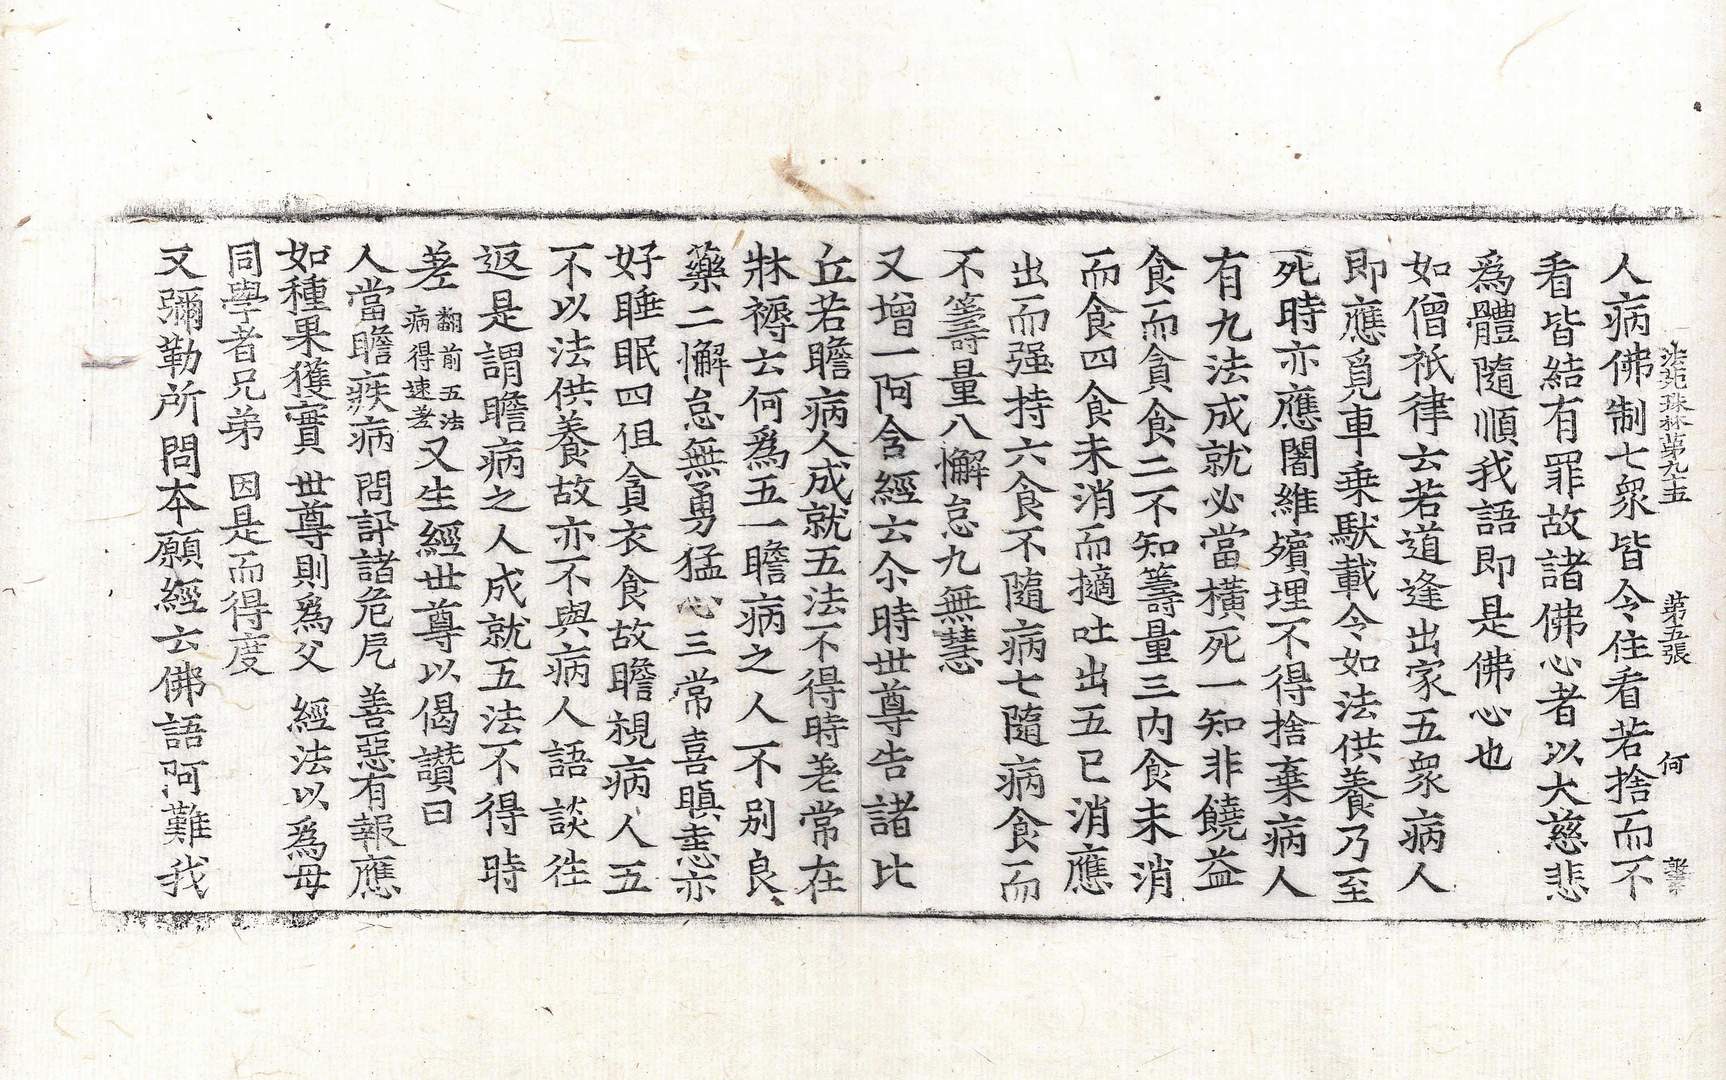 法苑珠林第九十五 第五張 何
人病佛制七衆皆令住看若捨而不
看皆結有罪故諸佛心者以大慈悲
爲體隨順我語即是佛心也
如僧祇律云若道逢出家五衆病人
即應覓車乗馱載令如法供養乃至
死時亦應闍維殯埋不得捨棄病人
有九法成就必當橫死一知非饒益
食而貪食二不知籌量三内食未消
而食四食未消而擿吐出五已消應
出而强持六食不隨病七隨病食而
不籌量八懈怠九無慧
又增一阿含經云尒時世尊告諸比
丘若瞻病人成就五法不得時差常在
牀褥云何爲五一瞻病之人不别良
藥二懈怠無勇猛心三常喜瞋恚亦
好睡眠四但貪衣食故瞻視病人五
不以法供養故亦不與病人語談徃
返是謂瞻病之人成就五法不得時
差翻前五法病得速差又生經世尊以偈讃曰
人當瞻疾病 問訊諸危厄 善惡有報應
如種果獲實 世尊則爲父 經法以爲母
同學者兄弟 因是而得度
又彌勒所問本願經云佛語阿難我